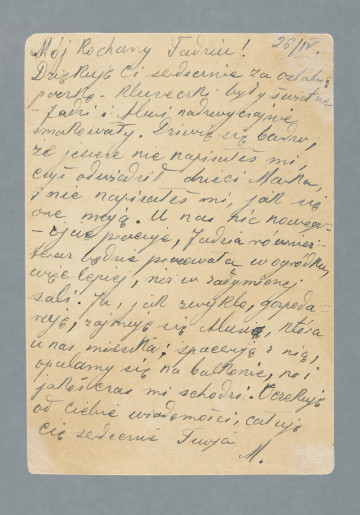 Mój Kochany Tadziu! 26/IV.
Dziękuję Ci serdecznie za ostatnią
paczkę - kluseczki były świetne
- Jadzi i Musi nadzwyczajnie
smakowały. Dziwię się bardzo,
że jeszcze nie napisałeś mi
czyś odwiedził dzieci Marka,
i nie napisałeś mi, jak się
one mają. U nas nic nowego -
- Ojciec pracuje, Jadzia również
teraz będzie pracowała w ogródku,
więc lepiej, niż w zadymionej
sali. Ja, jak zwykle, gospoda-
ruję, zajmuję się Musią, która
u nas mieszka; spaceruję z nią,
opalamy się na balkonie, no i
jakoś czas mi schodzi. Oczekuję
od Ciebie wiadomości, całuję
Cię serdecznie Twoja
M.